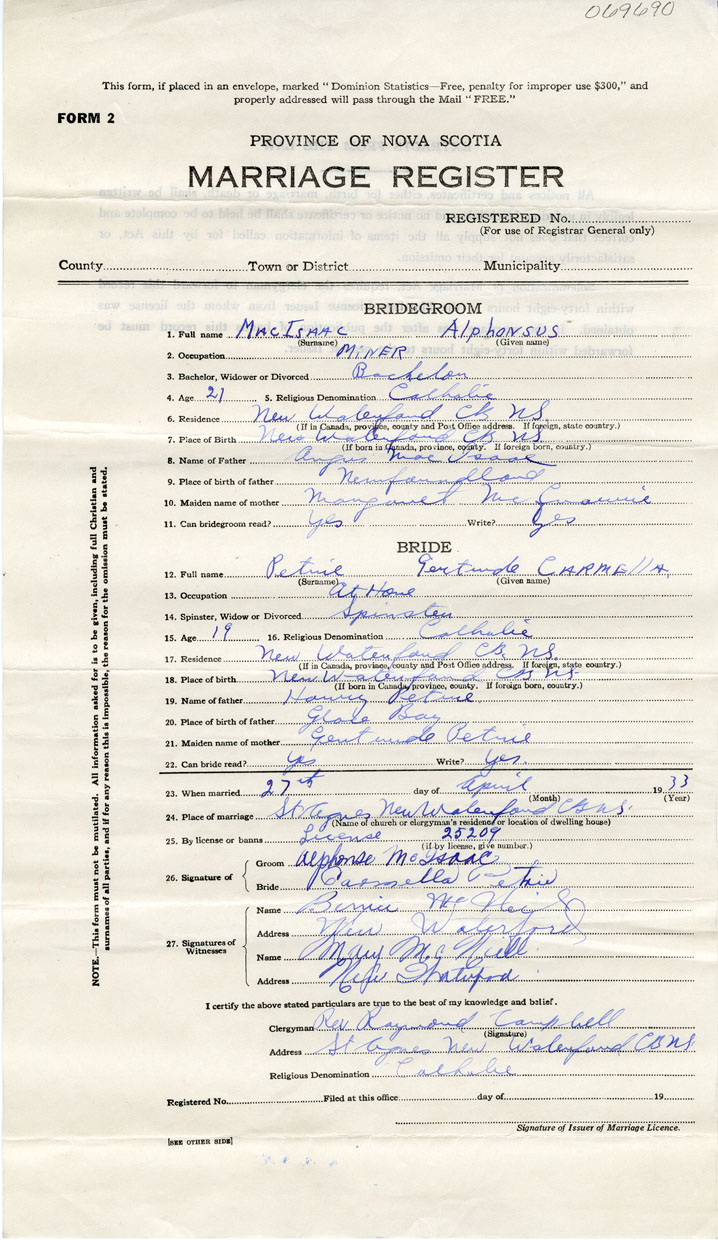 069690
This form, if placed in an envelope, marked "Dominion Statistics—Free, penalty for improper use $300," and
properly addressed will pass through the Mail "FREE."
FORM 2
PROVINCE OF NOVA SCOTIA
MARRIAGE REGISTER
REGISTERED No.
(For use of Registrar General only)
County Town or District Municipality
BRIDEGROOM
1. Full name MacIsaac Alphonsus
(Surname) (Given name)
2. Occupation MINER
3. Bachelor, Widower or Divorced Bachelor
4. Age 21 5. Religious Denomination Catholic
6. Residence New Waterford CB NS.
(If in Canada, province, county and Post Office address. If foreign, state country.)
7. Place of Birth New Waterford CB NS
(If born in Canada, province, county. If foreign born, country.)
8. Name of Father Angus Mac Isaac
9. Place of birth of father Newfoundland
10. Maiden name of mother Margaret
11. Can bridegroom read? Yes Write? Yes
BRIDE
12. Full name Petrie Gertrude CARMELLA
(Surname) (Given name)
13. Occupation At Home
14. Spinster, Widow or Divorced Spinster
15. Age 19 16. Religious Denomination Catholic
17. Residence New Waterford CB. NS.
(If in Canada, province, county and Post Office address. If foreign, state country.)
18. Place of birth New Waterford CB NS-
(If born in Canada, province, county. If foreign born, country.)
19. Name of father Petrie
20. Place of birth of father Glace Bay
21. Maiden name of mother Gertrude Petrie
22. Can bride read? Yes Write? Yes.
23. When married 27th day of April 1933
(Month) (Year)
24. Place of marriage St Agnes New Waterford CB NS.
(Name of church or clergyman's residence or location of dwelling house)
25. By license or banns License 25209
(if by license, give number.)
26. Signature of
Groom Alphonse McIsaac
Bride Carmella Petrie
27. Signatures of Witnesses
Name Bernie McNeil
Address New Waterford
Name Mary McNeill
Address New Waterford
I certify the above stated particulars are true to the best of my knowledge and belief.
Clergyman Rev Raymond Campbell
(Signature)
Address St Agnes New Waterford CB NS
Religious Denomination Catholic
Registered No. Filed at this office day of 19
Signature of Issuer of Marriage Licence.
[SEE OTHER SIDE]
NOTE.—This form must not be mutilated. All information asked for is to be given, including full Christian and
surnames of all parties, and if for any reason this is impossible, the reason for the omission must be stated.